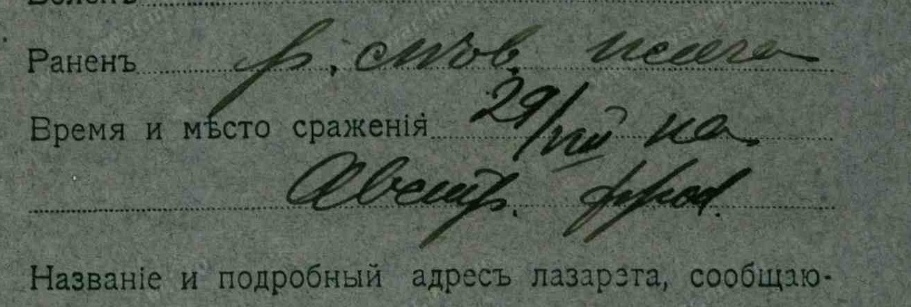 Раненъ р. ств.
Время и мѣсто сраженія 29/VIII на
Австр. фрон.
Названіе и подробный адресъ лазарета, сообщаю-